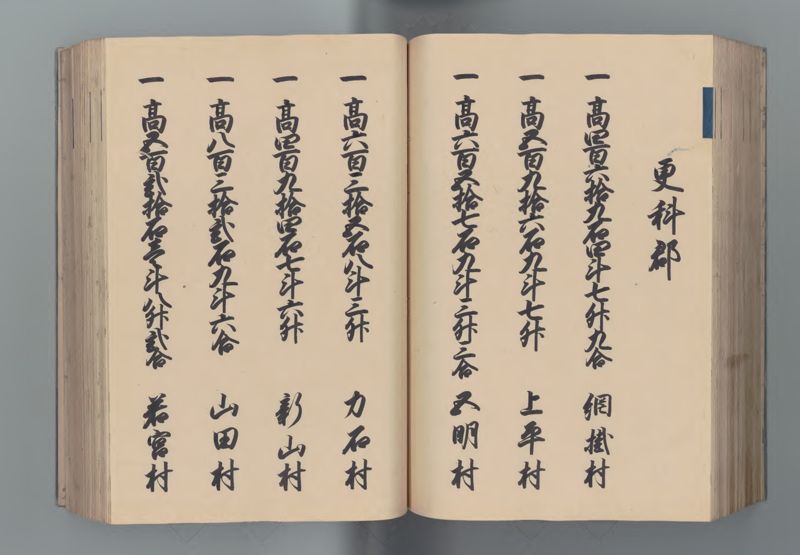 更科郡
一 高四百六拾九石四斗七升九合 網掛村
一 高五百九拾六石九斗七升 上平村
一 高六百五拾七石九斗三升三合 五明村
一 高六百三拾五石八斗三升 力石村
一 高四百九拾四石七斗六升 新山村
一 高八百三拾弐石九斗六合 山田村
一 高五百弐拾石壱斗八升弐合 若宮村